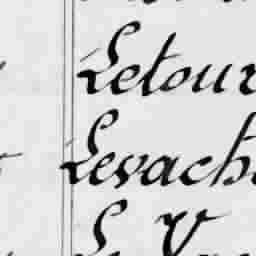 Letour
Levach
Le V